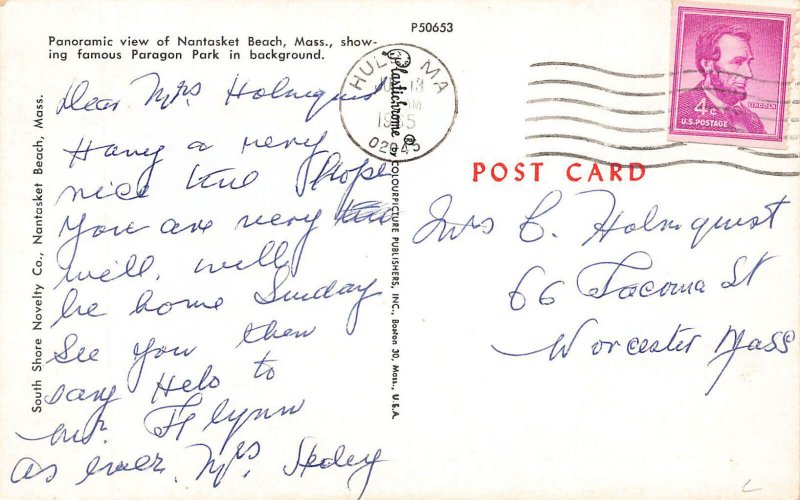 P50653
Panoramic view of Nantasket Beach, Mass., show-
ing famous Paragon Park in background.
South Shore Novelty Co., Nantasket Beach, Mass.
Plastichrome ® by COLOURPICTURE PUBLISHERS, INC., Boston 30, Mass., U.S.A.
HULL MA
13
1965
4¢
LINCOLN
U.S. POSTAGE
POST CARD
Dear Mrs Holmquist
Hang a very
nice time Hope
you are very
well. will
be home Sunday
See you then
say Helo to
Mr. Flynn
as ever. Mrs.
Mrs C. Holmquist
66 Tacoma St
Worcester Mass